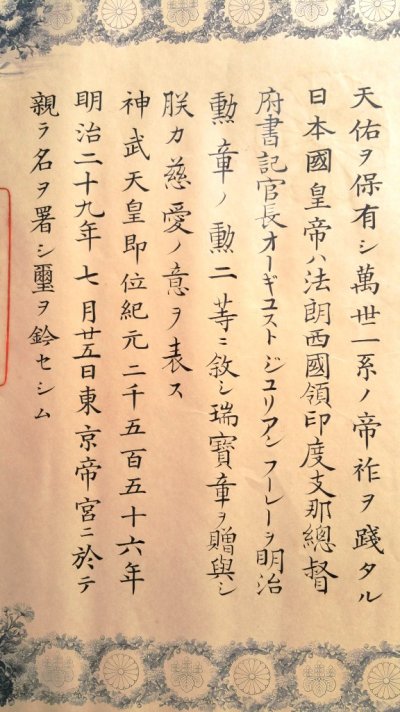 天佑ヲ保有シ萬世一系ノ帝祚ヲ踐タル
日本國皇帝ハ法朗西國領印度支那總督
府書記官長オーギユスト ジユリアン フーレーヲ明治
勲章ノ勲二等ニ敘シ瑞寶章ヲ贈與シ
朕カ慈愛ノ意ヲ表ス
神武天皇即位紀元二千五百五十六年
明治二十九年七月廿五日東京帝宮ニ於テ
親ラ名ヲ署シ璽ヲ鈐セシム